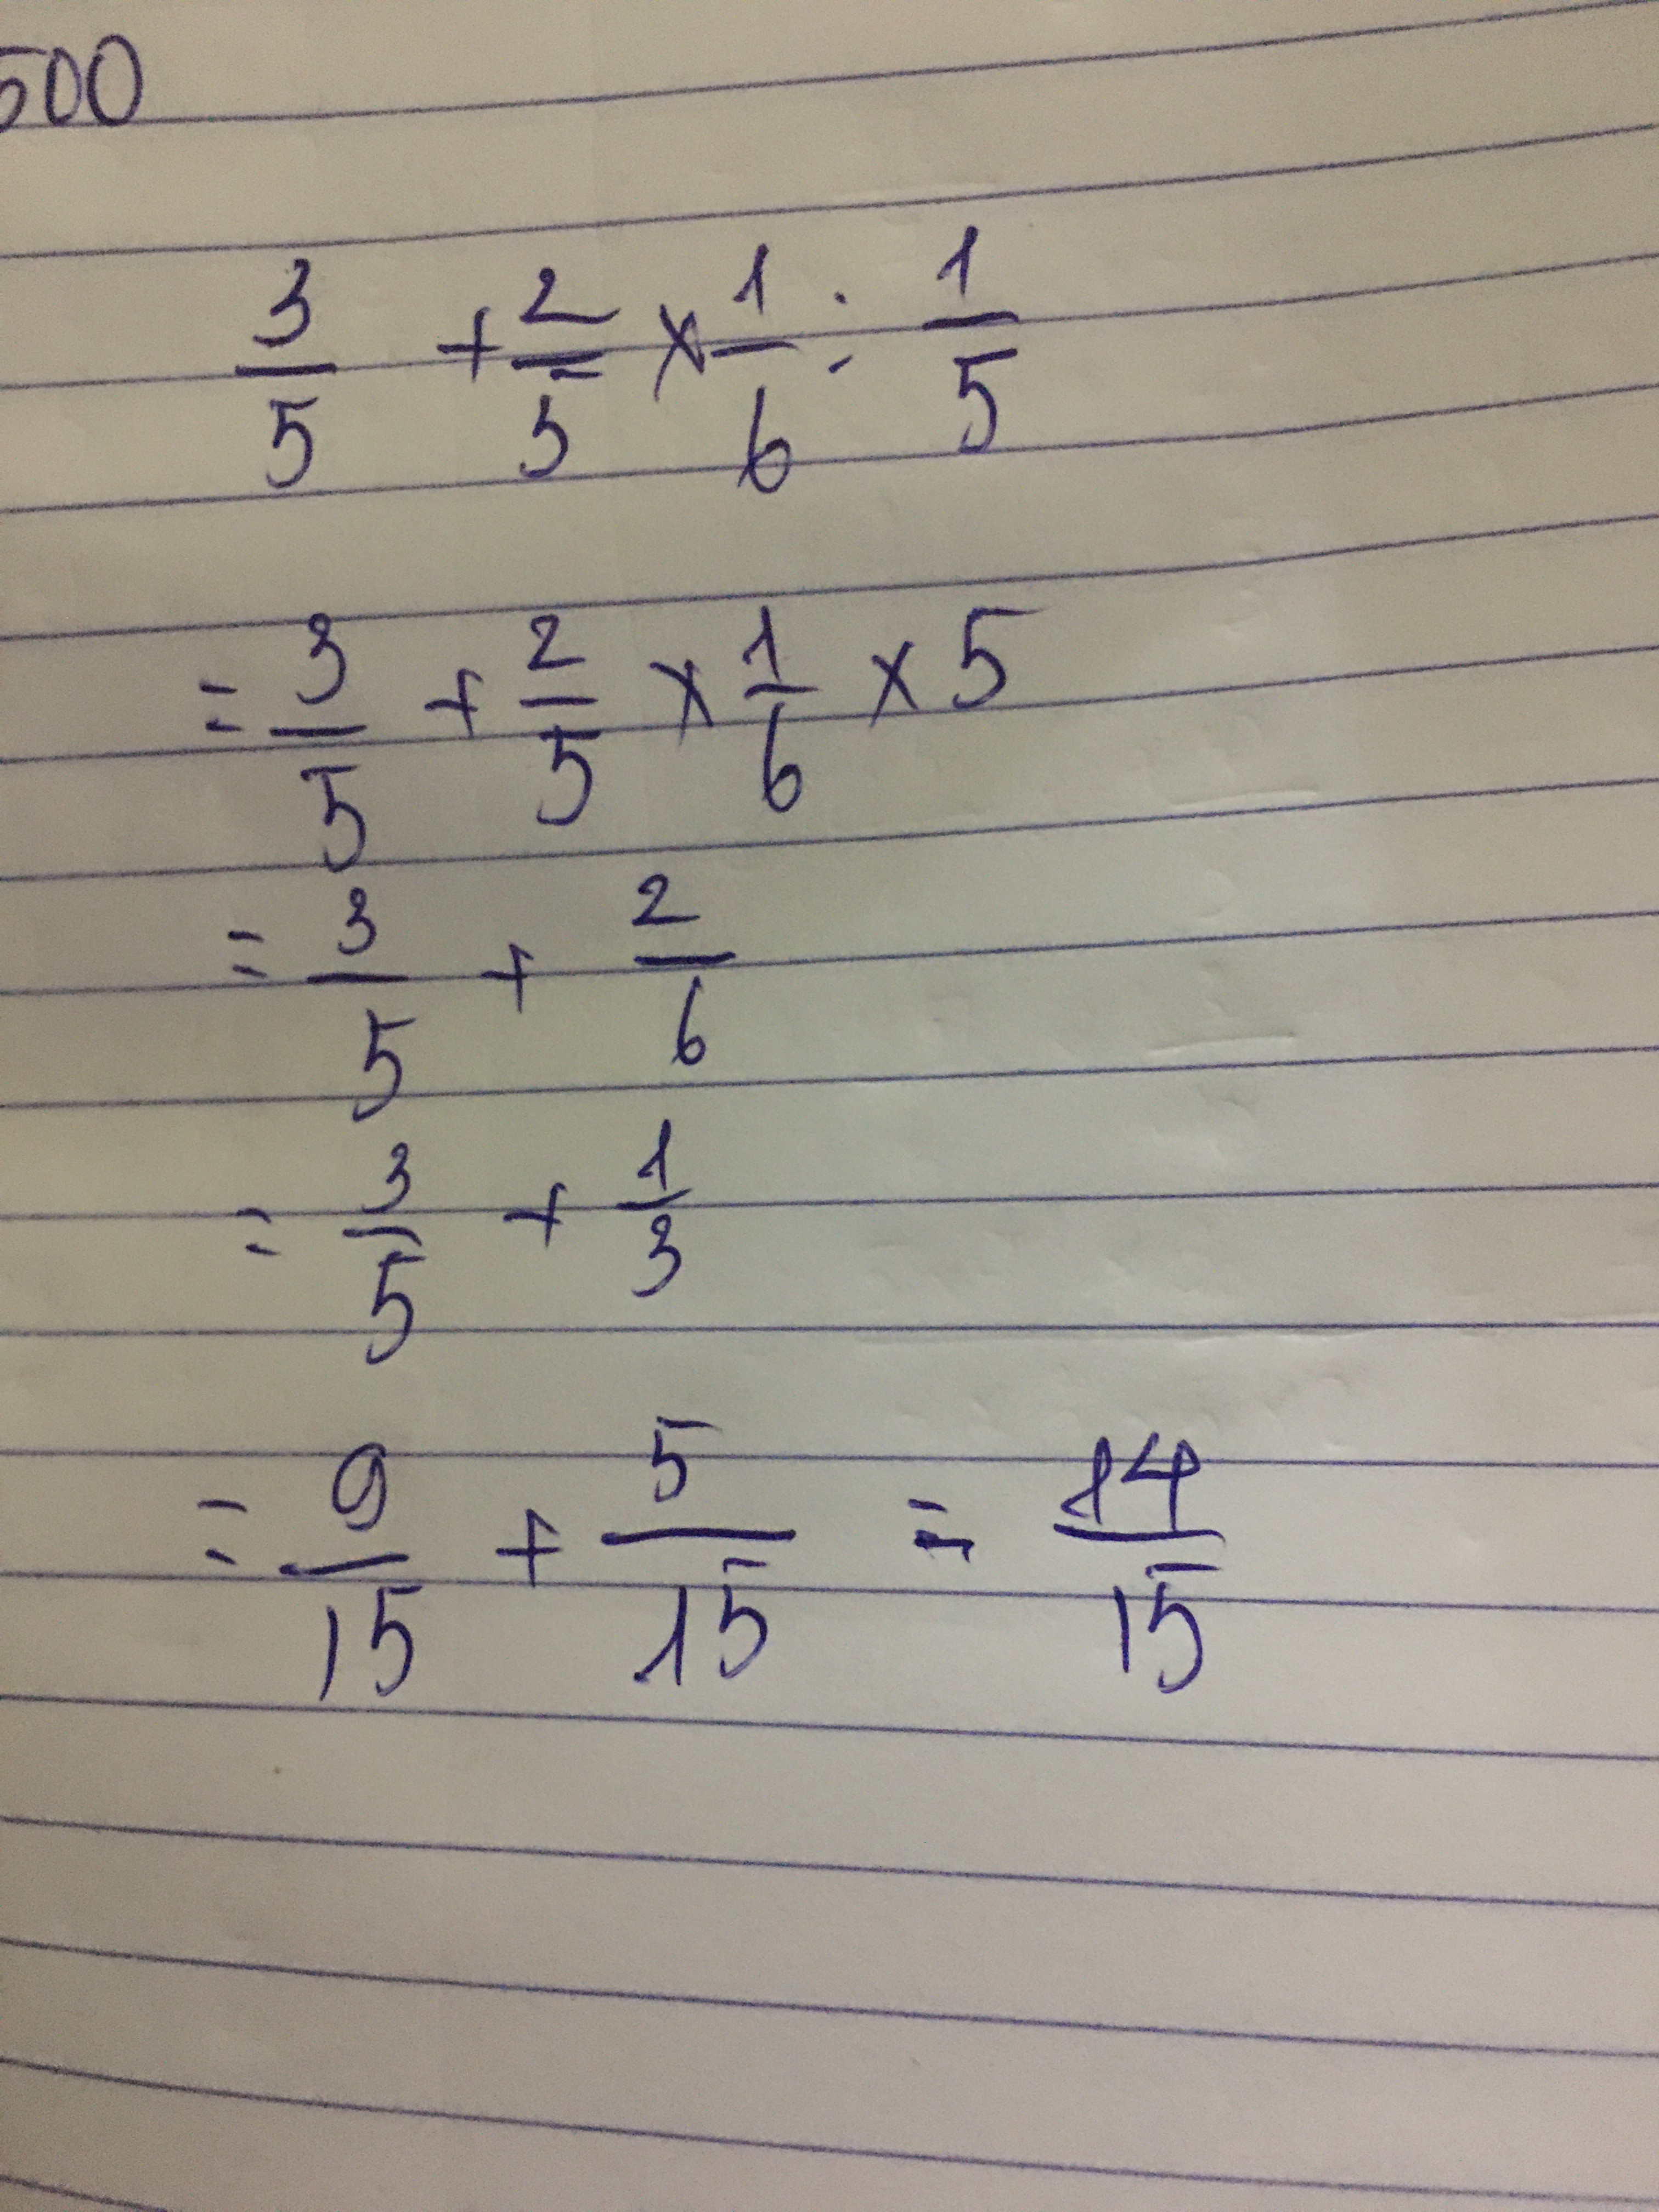 500
3/5 + 2/5 × 1/6 : 1/5
= 3/5 + 2/5 × 1/6 × 5
= 3/5 + 2/6
= 3/5 + 1/3
= 9/15 + 5/15 = 14/15